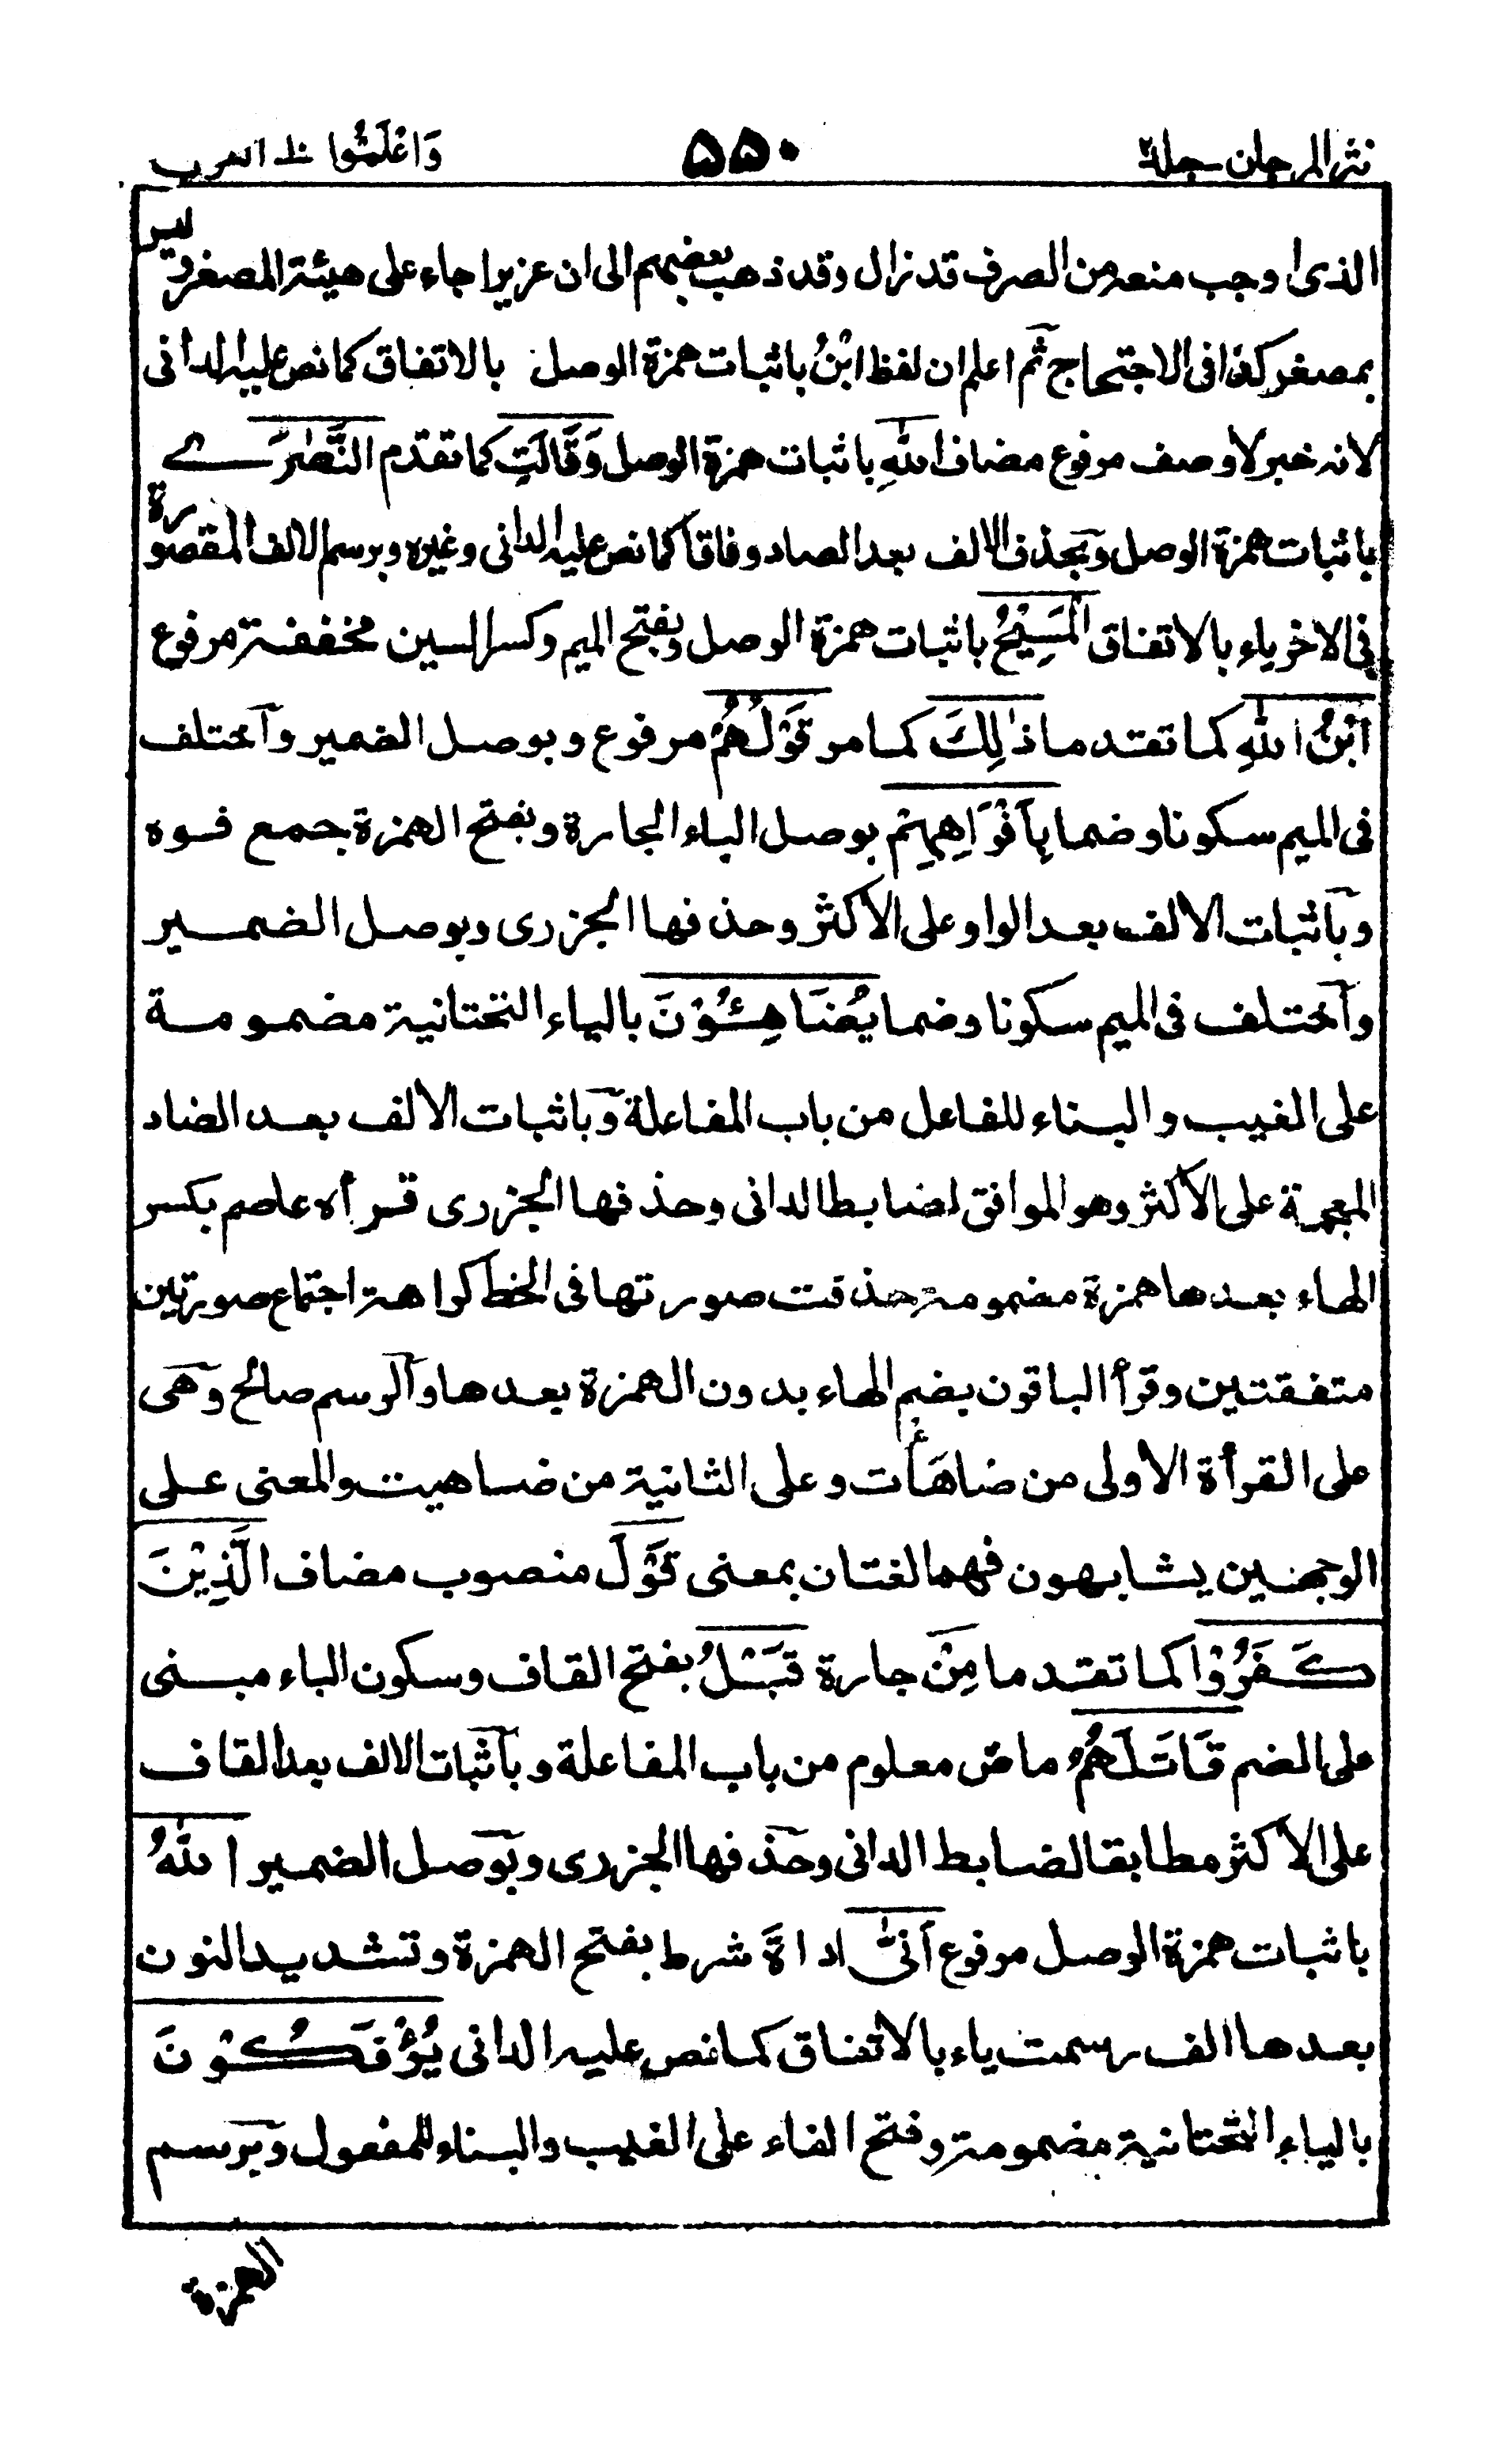 نثر المرجان جلد٢ ۵۵۰ وَاعْلَمُوْا
الذى اوجب منعه من الصرف قد نزال وقد ذهب بعضهم الى ان عزيرا جاء على هيئة المصغر وليس
بمصغر كذا فى الاحتجاج ثم اعلم ان لفظ ابْنُ باثبات همزة الوصل بالاتفاق كما نص عليه الدانى
لانه خبر لا وصف مرفوع مضاف اللّٰهِ باثبات همزة الوصل وَقَالَتِ كما تقدم النَّصٰرَے
باثبات همزة الوصل وبحذف الالف بعد الصاد وفاقا كما نص عليه الدانى وغيره وبرسم الالف المقصورة
فى الاخر ياء بالاتفاق الْمَسِيْحُ باثبات همزة الوصل وبفتح الميم وكسر السين مخففة مرفوع
ابْنُ اللّٰهِ كما تقدما ذٰلِكَ كما مر قَوْلُهُمْ مرفوع وبوصل الضمير واختلف
فى الميم سكونا وضما بِاَفْوَاهِهِمْ بوصل الباء الجارة وبفتح الهمزة جمع فوه
وباثبات الالف بعد الواو على الاكثر وحذفها الجزرى وبوصل الضمير
واختلف فى الميم سكونا وضما يُضَاهِئُوْنَ بالياء التحتانية مضمومة
على الغيب والبناء للفاعل من باب المفاعلة وباثبات الالف بعد الضاد
المعجمة على الاكثر وهو الموافق لضابط الدانى وحذفها الجزرى قرأه عاصم بكسر
الهاء بعدها همزة مضمومة حذفت صورتها فى الخط كراهة اجتماع صورتين
متفقتين وقرأ الباقون بضم الهاء بدون الهمزة بعدها والرسم صالح وهى
على القرأة الاولى من ضاهَأْت وعلى الثانية من ضاهيت والمعنى على
الوجهين يشابهون فهما لغتان بمعنى قَوْلَ منصوب مضاف الَّذِيْنَ
كَفَرُوْا كما تقدما مِنْ جارة قَبْلُ بفتح القاف وسكون الباء مبنى
على الضم قَاتَلَهُمُ ماض معلوم من باب المفاعلة وباثبات الالف بعد القاف
على الاكثر مطابقا لضابط الدانى وحذفها الجزرى وبوصل الضمير اللّٰهُ
باثبات همزة الوصل مرفوع اَنّٰى اداة شرط بفتح الهمزة وتشديد النون
بعدها الف رسمت ياء بالاتفاق كما نص عليه الدانى يُؤْفَكُوْنَ
بالياء التحتانية مضمومة وفتح الفاء على الغيب والبناء للمفعول وبرسم
الهمزة